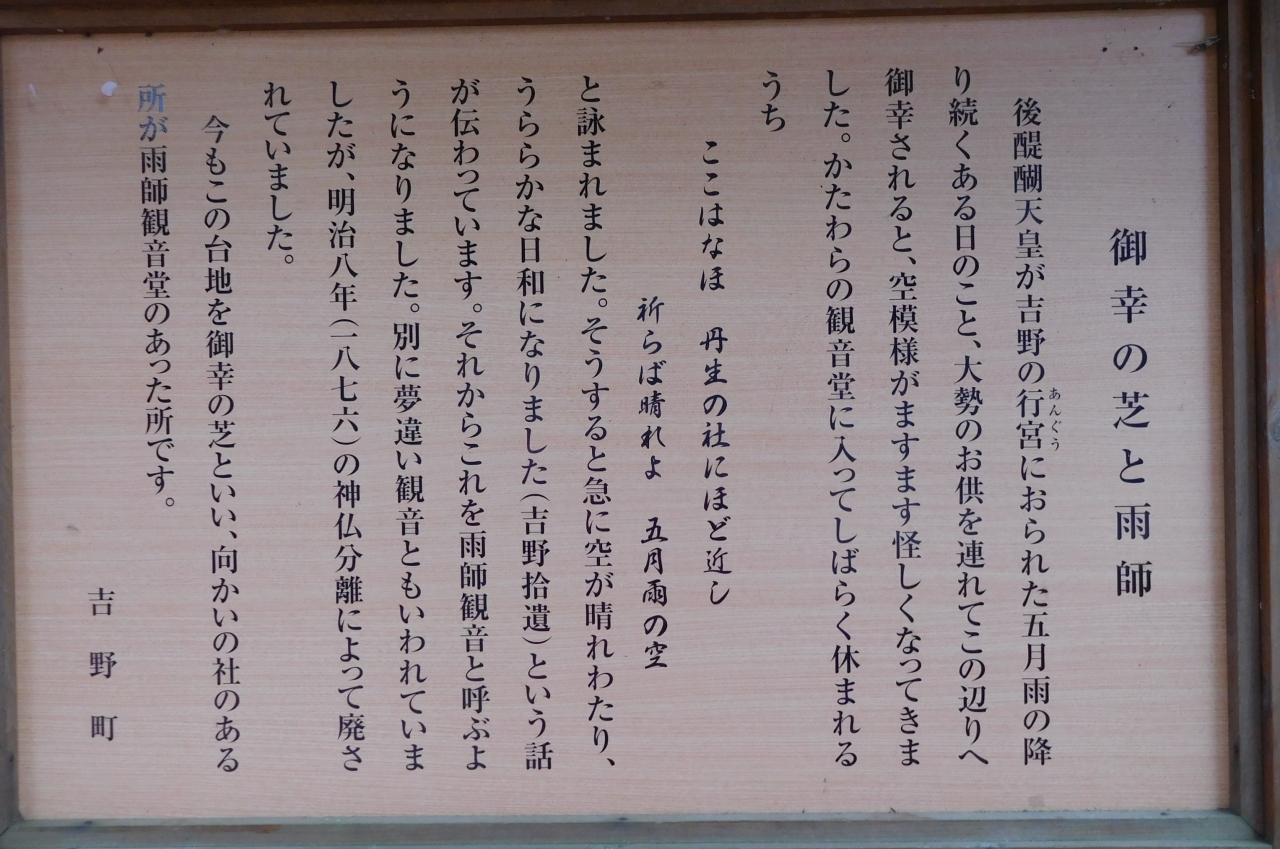 御幸の芝と雨師
後醍醐天皇が吉野の行宮におられた五月雨の降
あんぐう
り続くある日のこと、大勢のお供を連れてこの辺りへ
御幸されると、空模様がますます怪しくなってきま
した。かたわらの観音堂に入ってしばらく休まれる
うち
ここはなほ　丹生の社にほど近し
祈らば晴れよ　五月雨の空
と詠まれました。そうすると急に空が晴れわたり、
うららかな日和になりました（吉野拾遺）という話
が伝わっています。それからこれを雨師観音と呼ぶよ
うになりました。別に夢違い観音ともいわれていま
したが、明治八年（一八七六）の神仏分離によって廃さ
れていました。
今もこの台地を御幸の芝といい、向かいの社のある
所が雨師観音堂のあった所です。
吉野町